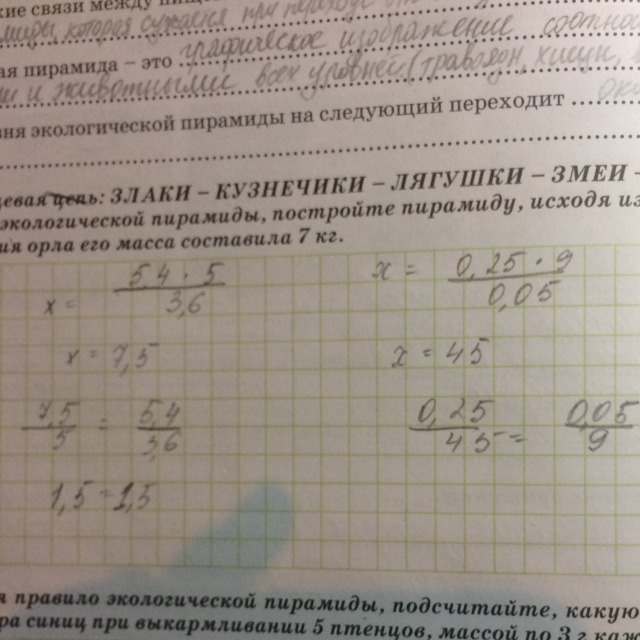 кие связи между пищ
миды, которая сужается при переходе от
ая пирамида – это графическое изображение соотно
и и животными всех уровней (травояд, хищн,
вня экологической пирамиды на следующий переходит
евая цепь: ЗЛАКИ – КУЗНЕЧИКИ – ЛЯГУШКИ – ЗМЕИ –
экологической пирамиды, постройте пирамиду, исходя из
ия орла его масса составила 7 кг.
x = 5,4 · 5 / 3,6
x = 0,25 · 9 / 0,05
x = 7,5
x = 45
7,5 / 5 = 5,4 / 3,6
0,25 / 45 = 0,05 / 9
1,5 = 1,5
я правило экологической пирамиды, подсчитайте, какую
ра синиц при выкармливании 5 птенцов, массой по 3 г каж